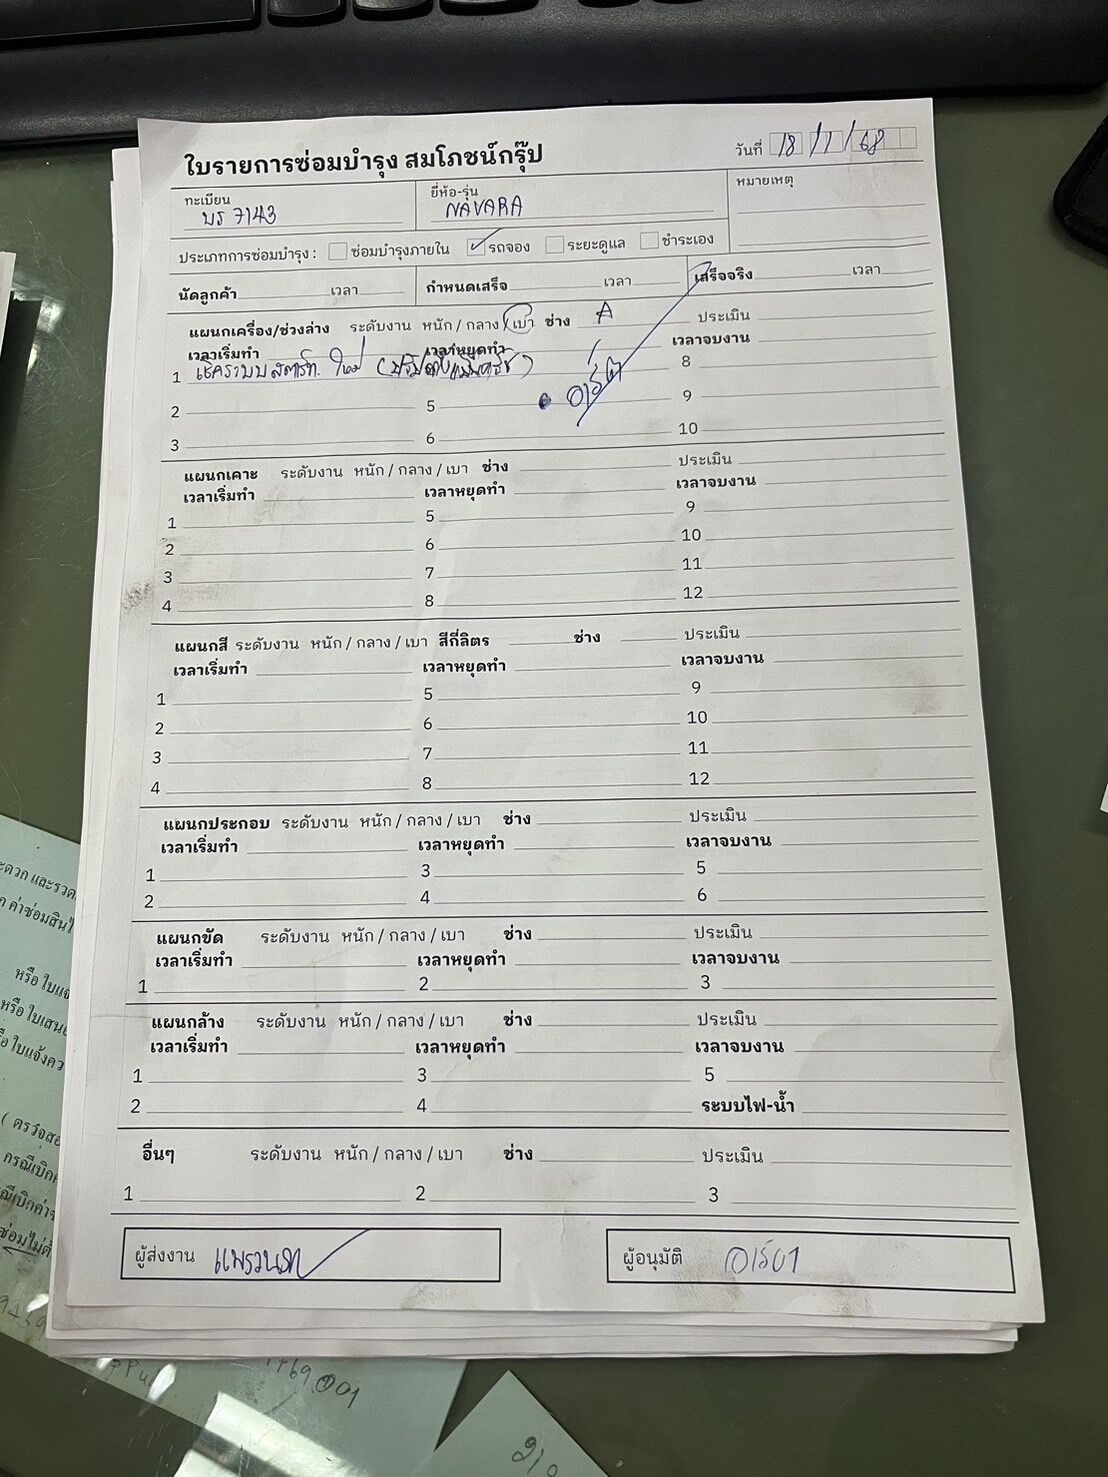 ใบรายการซ่อมบำรุง สมโภชน์กรุ๊ป
วันที่ 18/1/68
ทะเบียน บร 7143
ยี่ห้อ-รุ่น NAVARA
หมายเหตุ
ประเภทการซ่อมบำรุง : ซ่อมบำรุงภายใน รถจอง ระยะดูแล ชำระเอง
นัดลูกค้า เวลา กำหนดเสร็จ เวลา เสร็จจริง เวลา
แผนกเครื่อง/ช่วงล่าง ระดับงาน หนัก / กลาง / เบา ช่าง A ประเมิน
เวลาเริ่มทำ เวลาหยุดทำ เวลาจบงาน
1 เชคระบบสตาร์ท ใหม่ 8
2 5 9
3 6 10
แผนกเคาะ ระดับงาน หนัก / กลาง / เบา ช่าง ประเมิน
เวลาเริ่มทำ เวลาหยุดทำ เวลาจบงาน
1 5 9
2 6 10
3 7 11
4 8 12
แผนกสี ระดับงาน หนัก / กลาง / เบา สีกี่ลิตร ช่าง ประเมิน
เวลาเริ่มทำ เวลาหยุดทำ เวลาจบงาน
1 5 9
2 6 10
3 7 11
4 8 12
แผนกประกอบ ระดับงาน หนัก / กลาง / เบา ช่าง ประเมิน
เวลาเริ่มทำ เวลาหยุดทำ เวลาจบงาน
1 3 5
2 4 6
แผนกขัด ระดับงาน หนัก / กลาง / เบา ช่าง ประเมิน
เวลาเริ่มทำ เวลาหยุดทำ เวลาจบงาน
1 2 3
แผนกล้าง ระดับงาน หนัก / กลาง / เบา ช่าง ประเมิน
เวลาเริ่มทำ เวลาหยุดทำ เวลาจบงาน
1 3 5
2 4 ระบบไฟ-น้ำ
อื่นๆ ระดับงาน หนัก / กลาง / เบา ช่าง ประเมิน
1 2 3
ผู้ส่งงาน
ผู้อนุมัติ